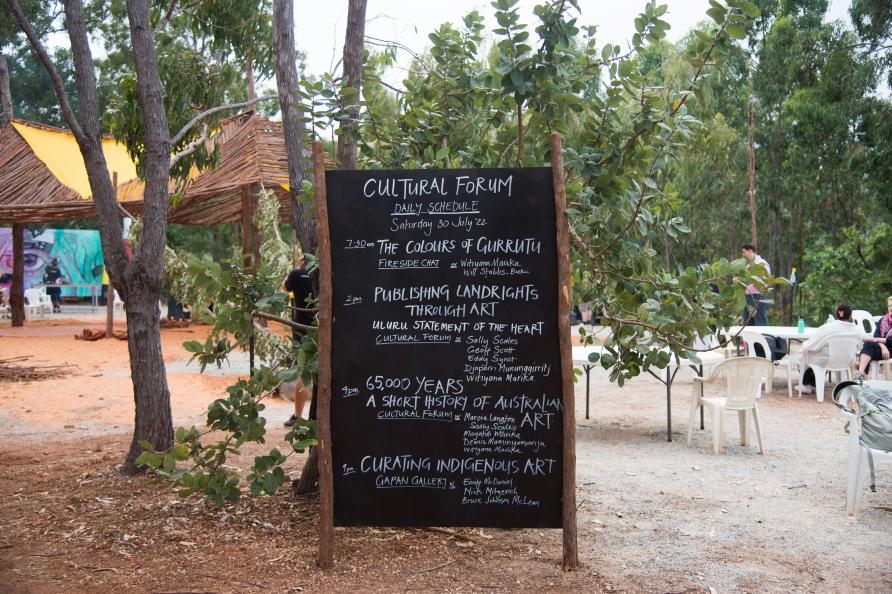 CULTURAL FORUM
DAILY SCHEDULE
Saturday 30 July '22
7:30am THE COLOURS OF GURRUTU
FIRESIDE CHAT w Wityana Marika
Will Stubbs - Buku
2pm. PUBLISHING LANDRIGHTS
THROUGH ART
ULURU STATEMENT OF THE HEART
CULTURAL FORUM w Sally Scales
Geoff Scott
Eddy Synot
Djapirri Mununggirritj
Wityana Marika
4pm. 65,000 YEARS
A SHORT HISTORY OF AUSTRALIAN
ART
CULTURAL FORUM w Marcia Langton
Sally Scales
Marika
Dennis
Wityana Marika
CURATING INDIGENOUS ART
GAPAN GALLERY w Emily McDaniel
Nick Mitzevich
Bruce Johnson McLean